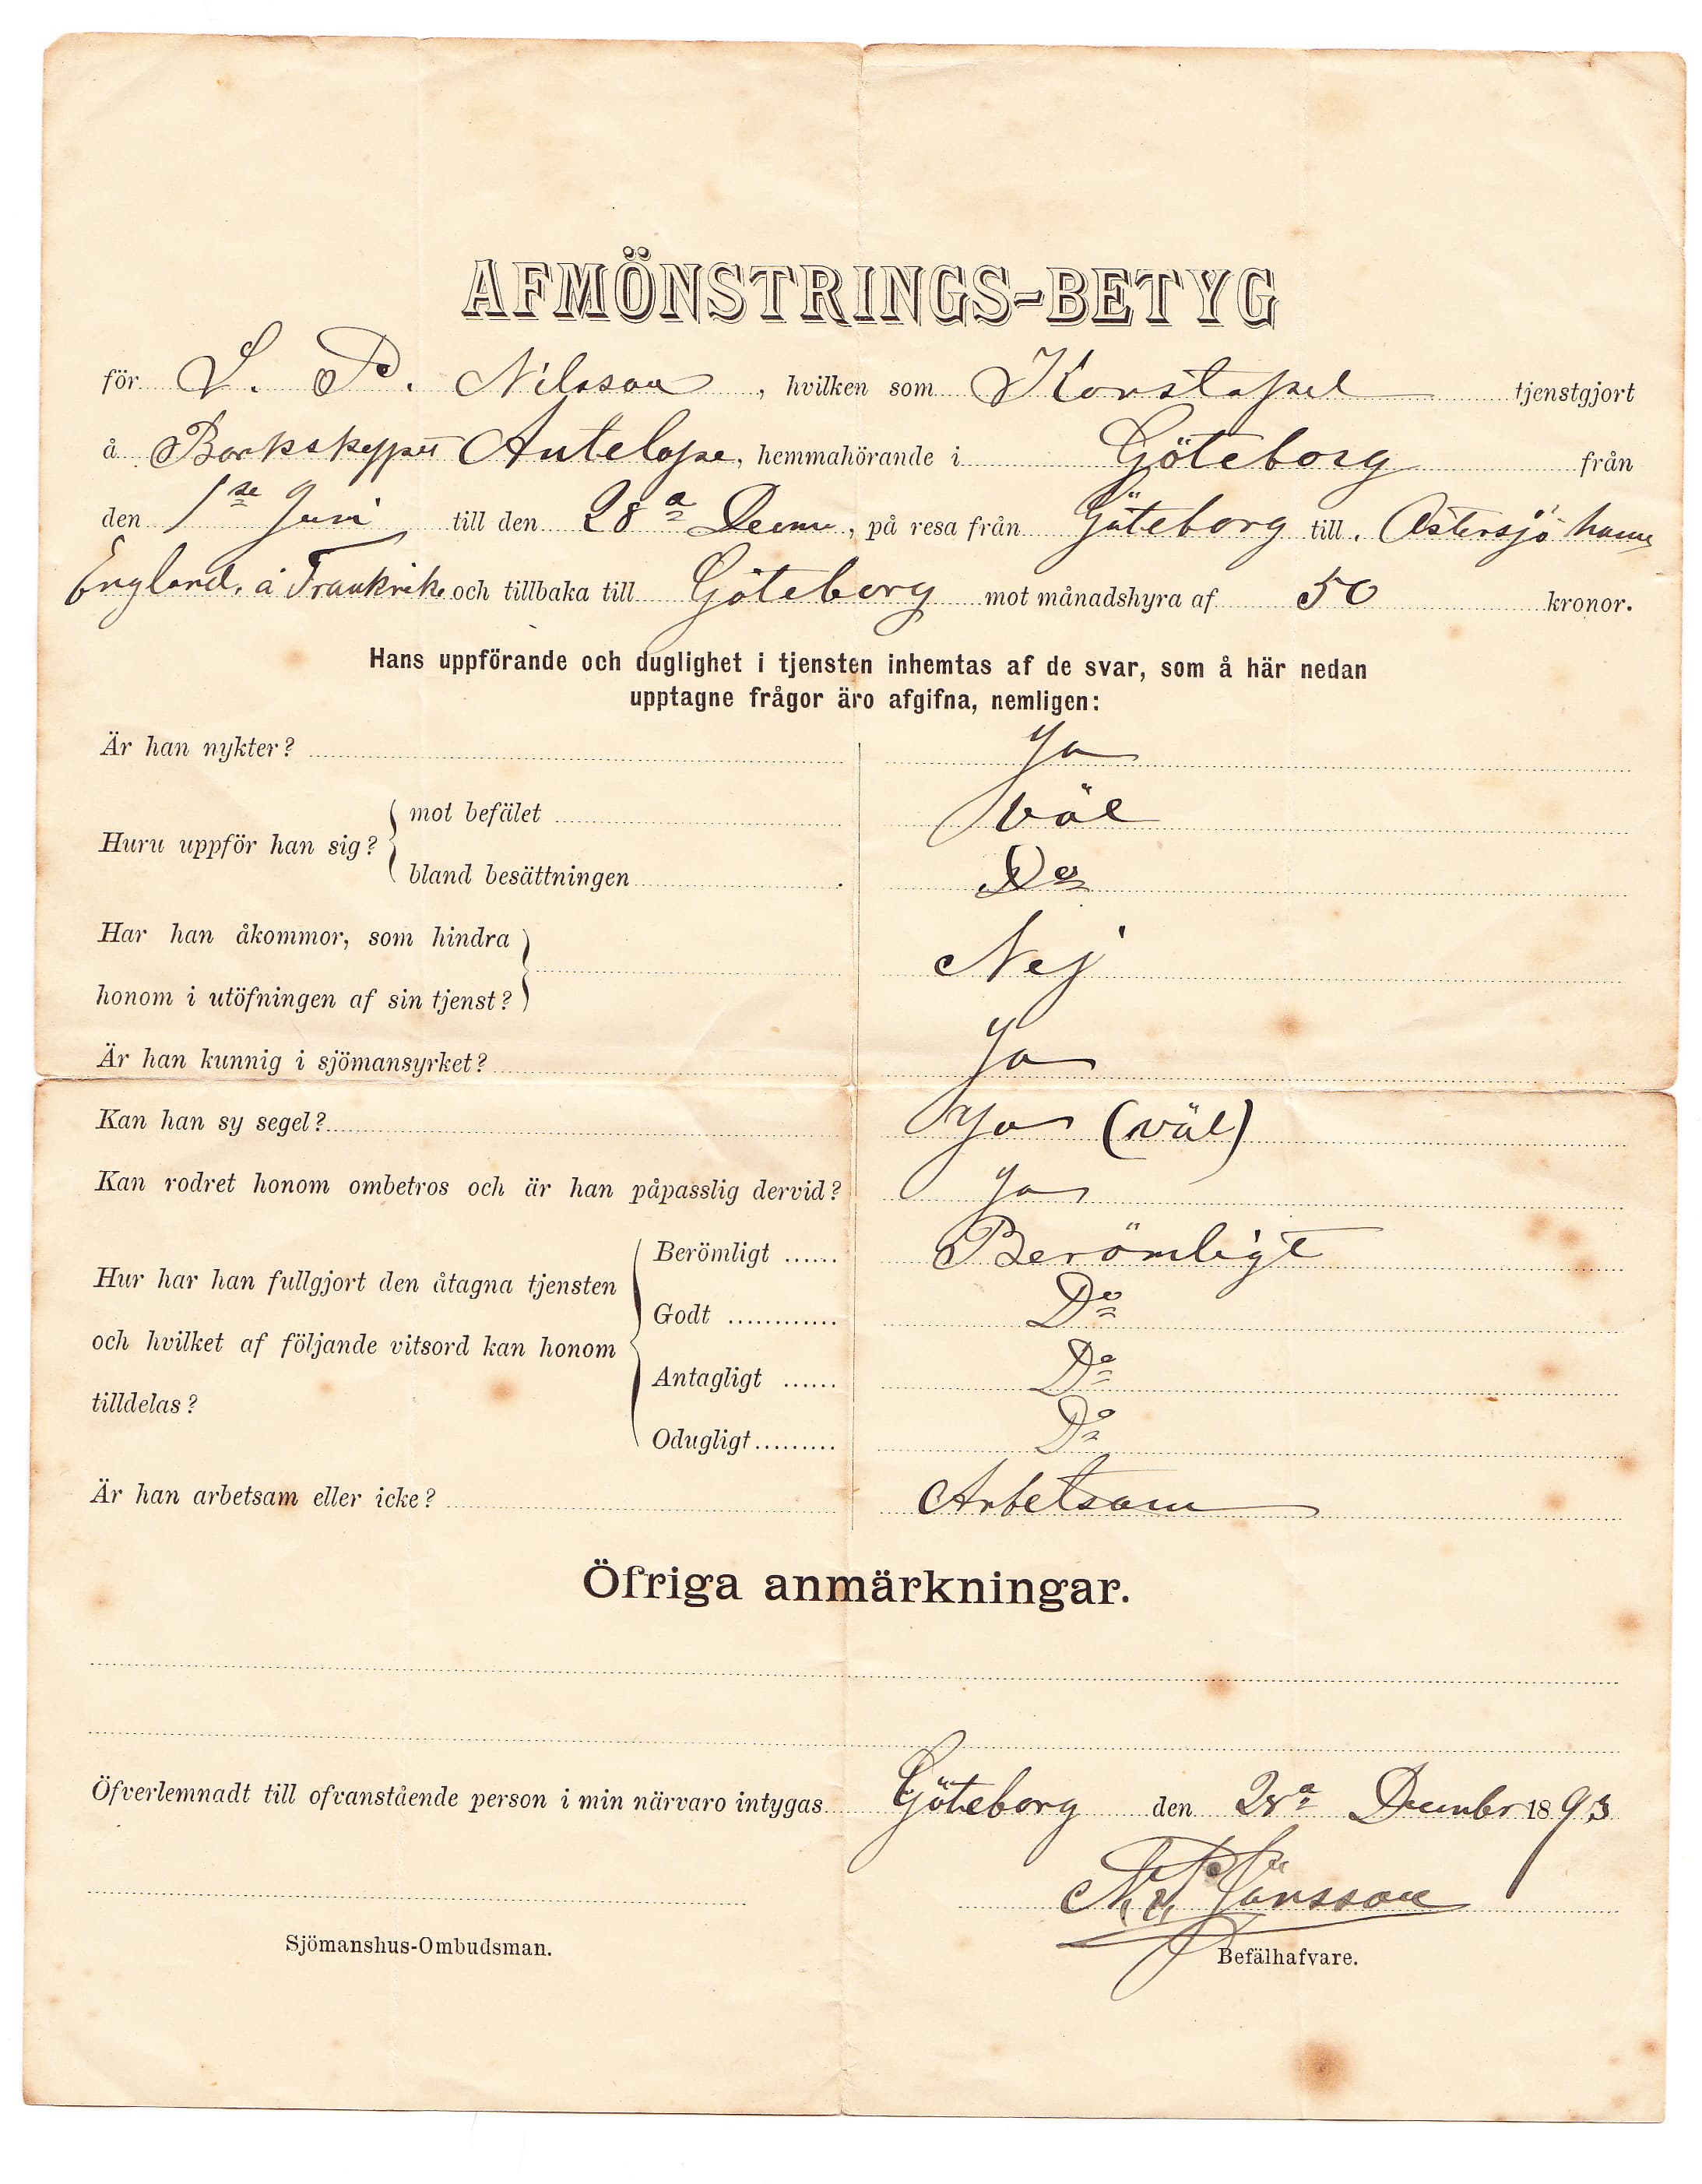 AFMÖNSTRINGS-BETYG
för L. P. Nilsson, hvilken som Konstapel tjenstgjort
å Barkskeppet Antelope, hemmahörande i Göteborg från
den 1se Juni till den 28a Decem, på resa från Göteborg till. Östersjö hamn
England. å Frankrike och tillbaka till Göteborg mot månadshyra af 50 kronor.
Hans uppförande och duglighet i tjensten inhemtas af de svar, som å här nedan
upptagne frågor äro afgifna, nemligen:
Är han nykter? Ja
Huru uppför han sig? mot befälet Väl
bland besättningen Do
Har han åkommor, som hindra
honom i utöfningen af sin tjenst? Nej
Är han kunnig i sjömansyrket? Ja
Kan han sy segel? Ja (väl)
Kan rodret honom ombetros och är han påpasslig dervid? Ja
Hur har han fullgjort den åtagna tjensten
och hvilket af följande vitsord kan honom
tilldelas?
Berömligt ...... Berömligt
Godt ............ Do
Antagligt ...... Do
Odugligt......... Do
Är han arbetsam eller icke? Arbetsam
Öfriga anmärkningar.
Öfverlemnadt till ofvanstående person i min närvaro intygas. Göteborg den 28a December 1893
Jönsson
Sjömanshus-Ombudsman. Befälhafvare.